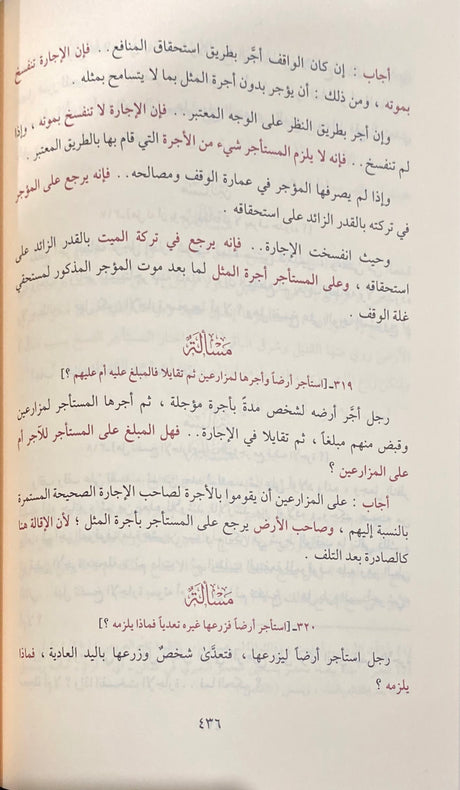 أجاب : إن كان الواقف أجَّر بطريق استحقاق المنافع . . فإن الإجارة تنفسخ
بموته ، ومن ذلك : أن يؤجر بدون أجرة المثل بما لا يتسامح بمثله .
وإن أجر بطريق النظر على الوجه المعتبر . . فإن الإجارة لا تنفسخ بموته ، وإذا
لم تنفسخ . . فإنه لا يلزم المستأجر شيء من الأجرة التي قام بها بالطريق المعتبر .
وإذا لم يصرفها المؤجر في عمارة الوقف ومصالحه . . فإنه يرجع على المؤجر
في تركته بالقدر الزائد على استحقاقه .
وحيث انفسخت الإجارة . . فإنه يرجع في تركة الميت بالقدر الزائد على
استحقاقه ، وعلى المستأجر أجرة المثل لما بعد موت المؤجر المذكور لمستحقي
غلة الوقف .
مَسْأَلَةٌ
٣١٩ـ [استأجر أرضاً وأجرها لمزارعين ثم تقايلا فالمبلغ عليه أم عليهم ؟]
رجل أجَّر أرضه لشخص مدةً بأجرة مؤجلة ، ثم أجرها المستأجر لمزارعين
وقبض منهم مبلغاً ، ثم تقايلا في الإجارة . . فهل المبلغ على المستأجر للآجر أم
على المزارعين ؟
أجاب : على المزارعين أن يقوموا بالأجرة لصاحب الإجارة الصحيحة المستمرة
بالنسبة إليهم ، وصاحب الأرض يرجع على المستأجر بأجرة المثل ؛ لأن الإقالة هنا
كالصادرة بعد التلف .
مَسْأَلَةٌ
٣٢٠ـ [استأجر أرضاً فزرعها غيره تعدياً فماذا يلزمه ؟]
رجل استأجر أرضاً ليزرعها ، فتعدَّىٰ شخصٌ وزرعها باليد العادية ، فماذا
يلزمه ؟
٤٣٦